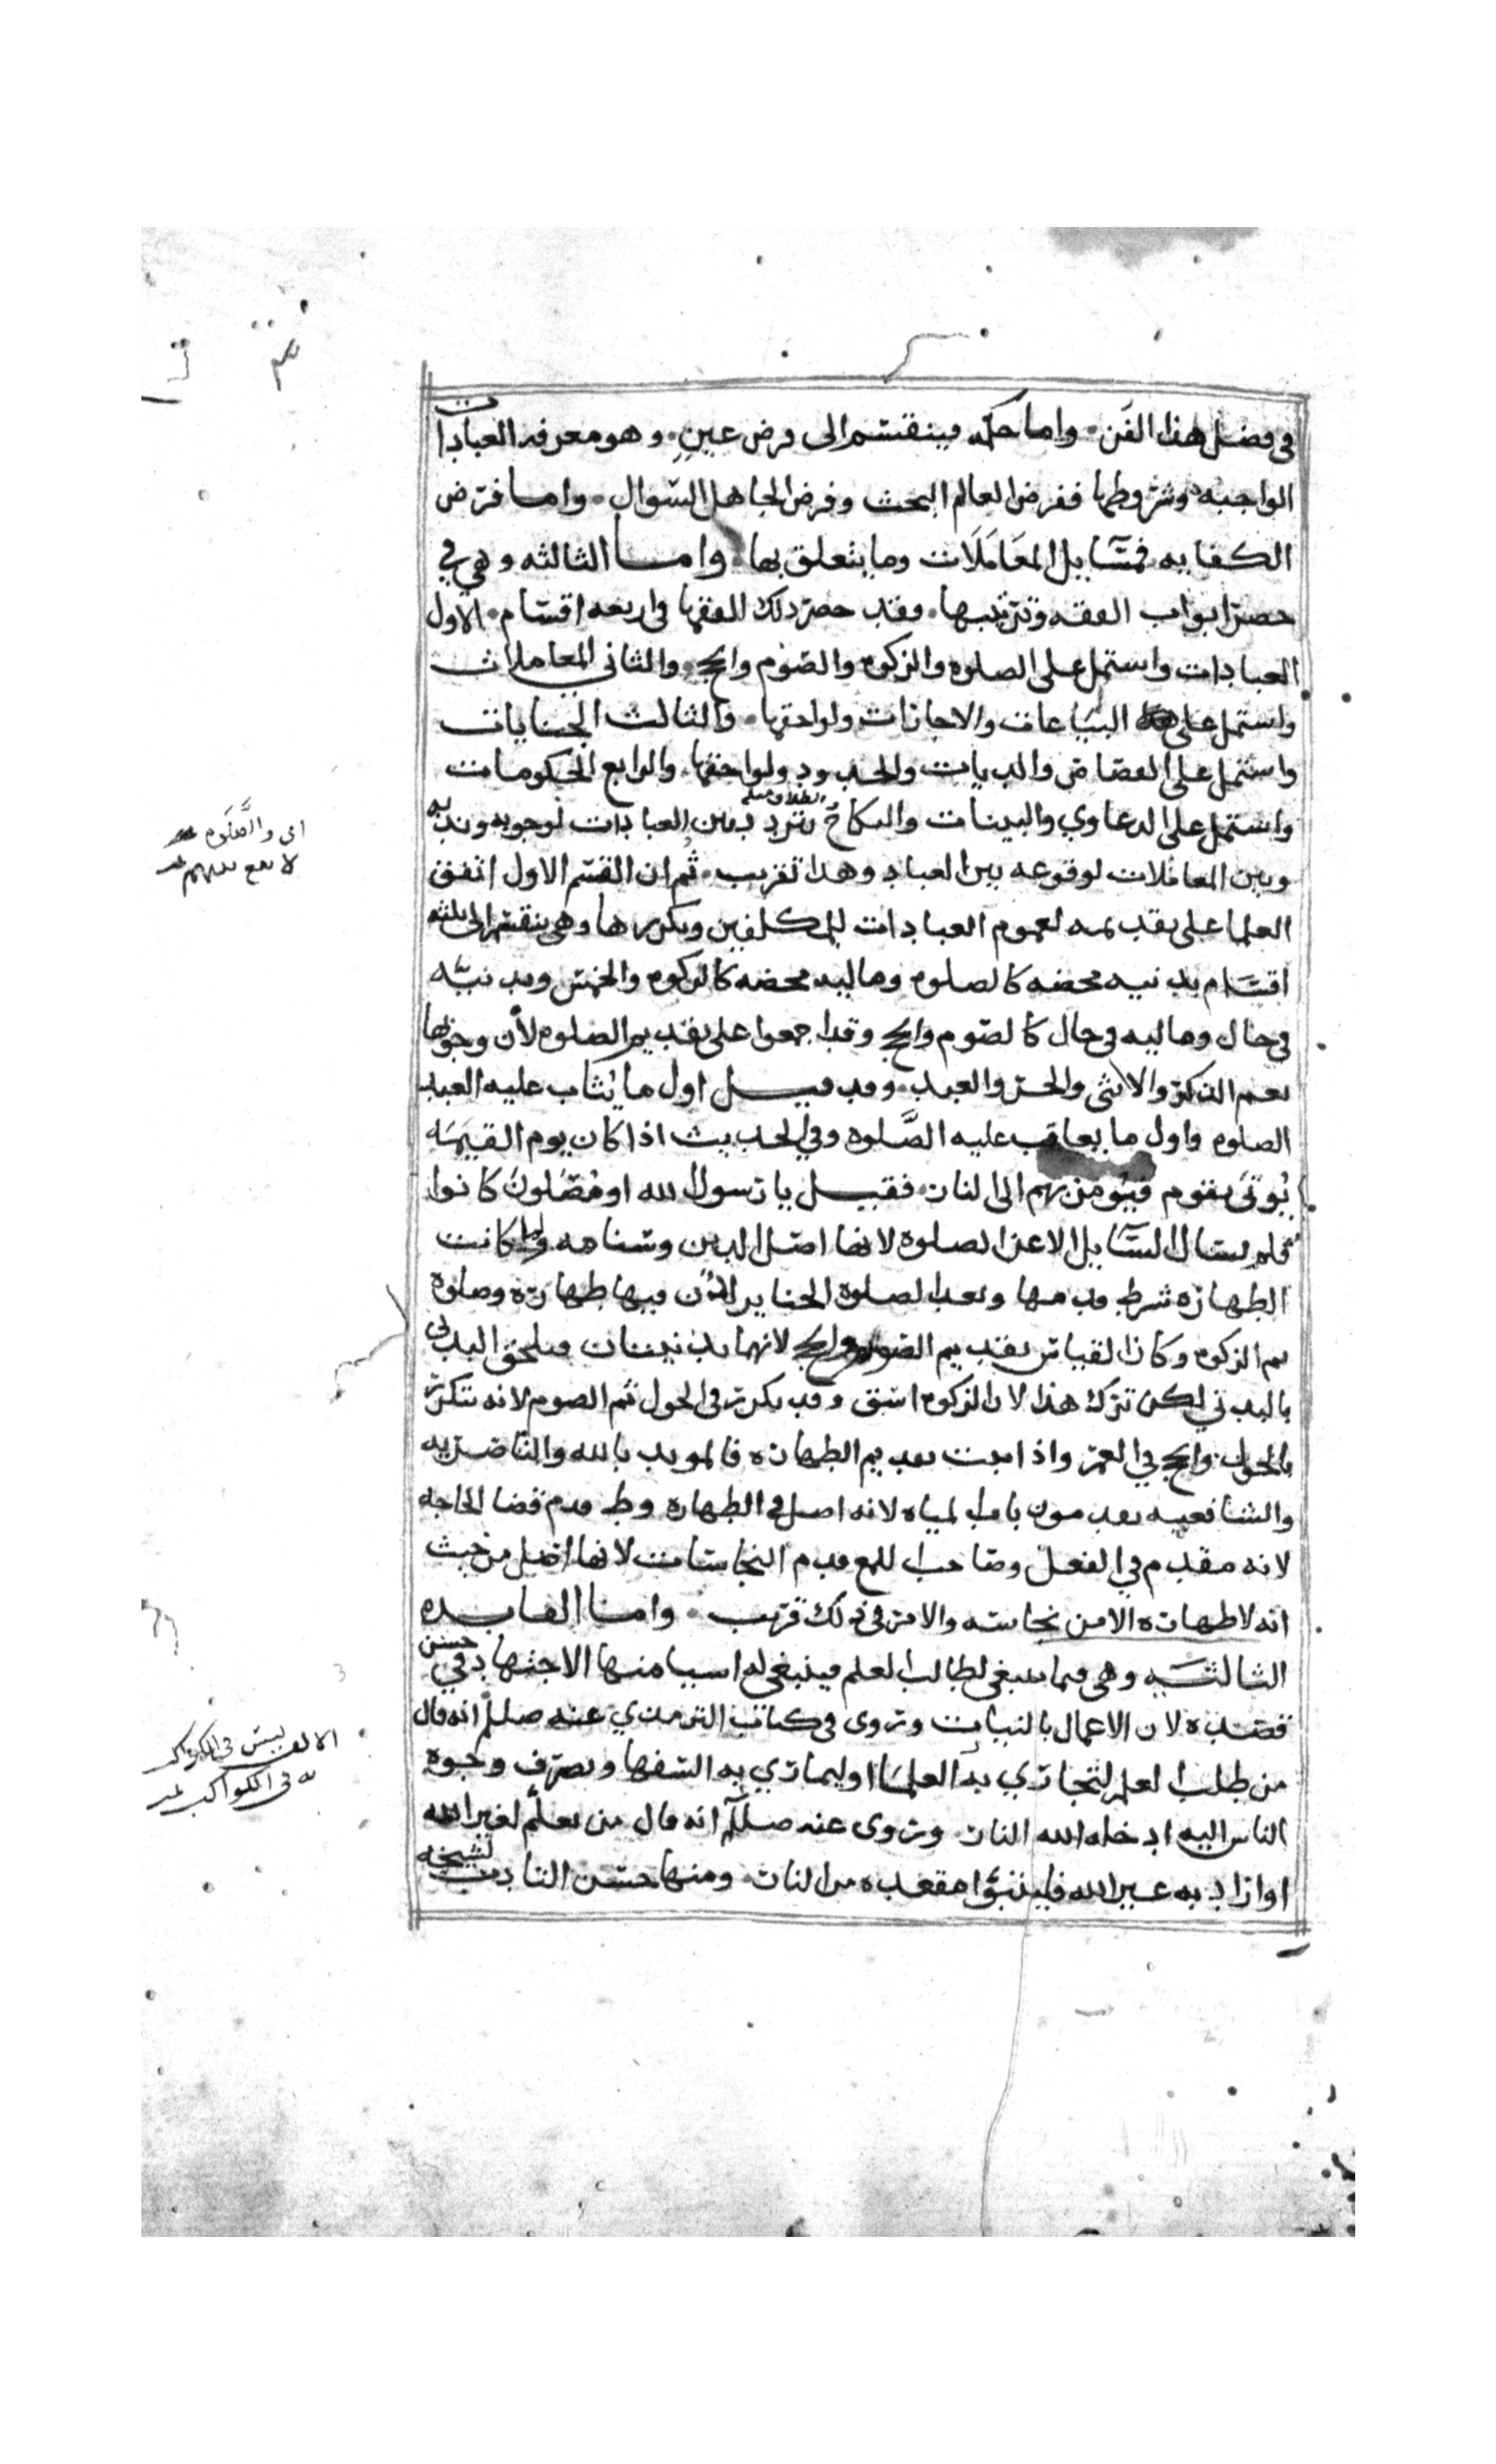 في فضل هذا الفن. واما حكمه فينقسم الى فرض عين. وهو معرفه العبادات
الواجبه وشروطها ففرض العالم البحث وفرض الجاهل السوال. واما فرض
الكفايه فمسايل المعاملات وما يتعلق بها. واما الثالثه وهي في
حصر ابواب الفقه وترتيبها. فقد حصر ذلك الفقها في اربعه اقسام. الاول
العبادات واشتمل على الصلوه والزكوه والصوم والحج. والثاني المعاملات
واشتمل على البياعات والاجارات ولواحقها. والثالث الجنايات
واشتمل على القصاص والديات والحدود ولواحقها. والرابع الحكومات
واشتمل على الدعاوي والبينات والنكاح يتردد بين العبادات لوجوبه وندبه
وبين المعاملات لوقوعه بين العباد وهذا تقريب. ثم ان القسم الاول اتفق
العلما على تقديمه لعموم العبادات للمكلفين وتكررها وهي تنقسم الى ثلثه
اقسام بدنيه محضه كالصلوه وماليه محضه كالزكوه والخمس وبدنيه
في حال وماليه في حال كالصوم والحج وقد اجمعوا على تقديم الصلوه لأن وجوبها
يعم الذكر والانثى والحر والعبد. وقد قيل اول ما يثاب عليه العبد
الصلوه واول ما يعاقب عليه الصلوه وفي الحديث اذا كان يوم القيمه
يوتى بقوم فيومر بهم الى النار. فقيل يا رسول الله او مصلون كانوا
فلم يسال السايل الا عن الصلوه لانها اصل الدين وسنامه ولما كانت
الطهاره شرط قدمها وبعد الصلوه الجنايز لأن فيها طهاره وصلوه
ثم الزكوه وكان القياس تقديم الصوم والحج لانهما بدنيتان فيلحق البدني
بالبدني لكن ترك هذا لان الزكوه اشق وقد تكرر في الحول ثم الصوم لانه يتكرر
بالحول والحج في العمر واذا ثبت تقديم الطهاره فالمويد بالله والناصريه
والشافعيه يقدمون باب المياه لانه اصل في الطهاره وط قدم قضا الحاجه
لانه مقدم في الفعل وصاحب اللمع قدم النجاسات لانها اصل من حيث
انه لا طهاره الا من نجاسه والامر في ذلك قريب. واما الفايده
الثالثه وهي فيما ينبغي لطالب العلم فينبغي له اشيا منها الاجتهاد في حسن
قصده لان الاعمال بالنيات وروى في كتاب الترمذي عنه صللم انه قال
من طلب العلم ليجاري به العلما او ليماري به السفها ويصرف وجوه
الناس اليه ادخله الله النار. وروى عنه صللم انه قال من تعلم لغير الله
او اراد به غير الله فليتبوا مقعده من النار. ومنها حسن التادب لشيخه